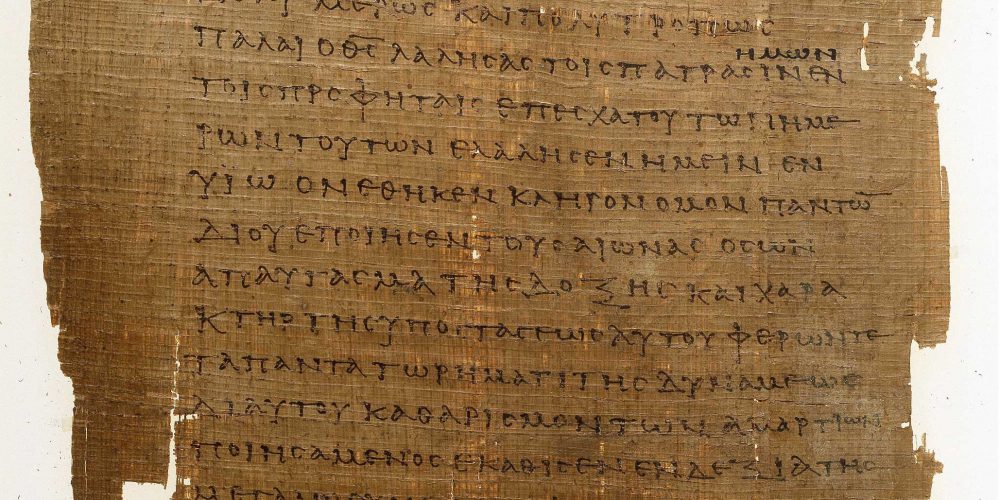 ΜΕΡΩϹ ΚΑΙ ΠΟΛΥΤΡΟΠΩϹ
ΗΜΩΝ
ΠΑΛΑΙ Ο Θ̅Ϲ̅ ΛΑΛΗϹΑϹ ΤΟΙϹ ΠΑΤΡΑϹΙΝ ΕΝ
ΤΟΙϹ ΠΡΟΦΗΤΑΙϹ ΕΠ ΕϹΧΑΤΟΥ ΤΩΝ ΗΜΕ
ΡΩΝ ΤΟΥΤΩΝ ΕΛΑΛΗϹΕΝ ΗΜΕΙΝ ΕΝ
ΫΙΩ ΟΝ ΕΘΗΚΕΝ ΚΛΗΡΟΝΟΜΟΝ ΠΑΝΤΩ̅
ΔΙ ΟΥ ΕΠΟΙΗϹΕΝ ΤΟΥϹ ΑΙΩΝΑϹ ΟϹ ΩΝ
ΑΠΑΥΓΑϹΜΑ ΤΗϹ ΔΟΞΗϹ ΚΑΙ ΧΑΡΑ
ΚΤΗΡ ΤΗϹ ΥΠΟϹΤΑϹΕΩϹ ΑΥΤΟΥ ΦΕΡΩΝ ΤΕ
ΤΑ ΠΑΝΤΑ ΤΩ ΡΗΜΑΤΙ ΤΗϹ ΔΥΝΑΜΕΩϹ
ΔΙ ΑΥΤΟΥ ΚΑΘΑΡΙϹΜΟΝ ΤΩΝ ΑΜΑΡΤΙΩΝ
ΠΟΙΗϹΑΜΕΝΟϹ ΕΚΑΘΙϹΕΝ ΕΝ ΔΕΞΙΑ ΤΗϹ